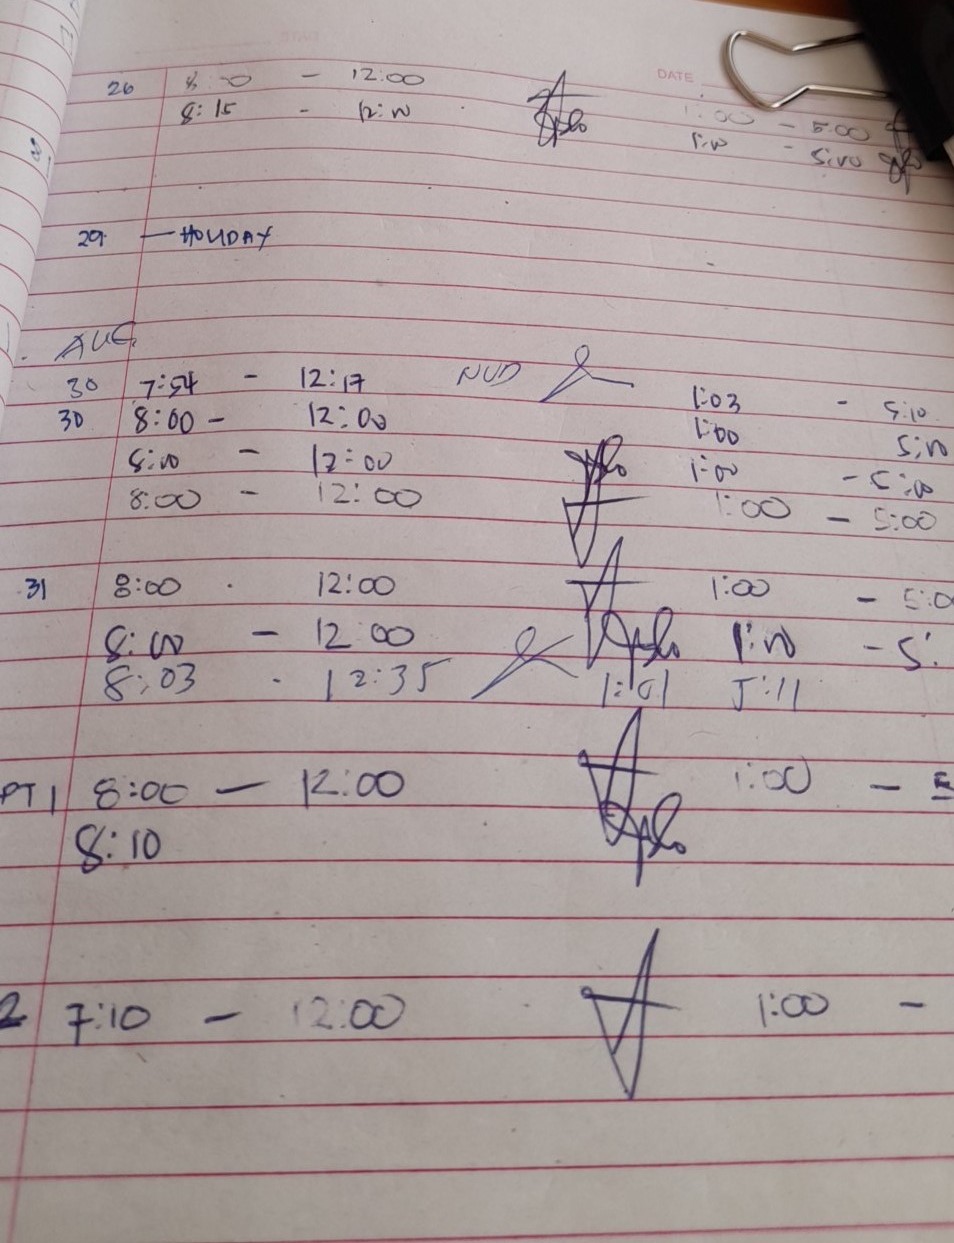 DATE
26 8:00 - 12:00 1:00 - 5:00
8:15 - 12:00 1:00 - 5:00
29 - HOLIDAY
AUG.
30 7:54 - 12:17 1:03 - 5:10
30 8:00 - 12:00 1:00 5:00
8:00 - 12:00 1:00 - 5:00
8:00 - 12:00 1:00 - 5:00
31 8:00 12:00 1:00 - 5:0
8:00 - 12:00 1:00 - 5:
8:03 - 12:35 1:01 5:11
PT 1 8:00 - 12:00 1:00 -
8:10
2 7:10 - 12:00 1:00 -